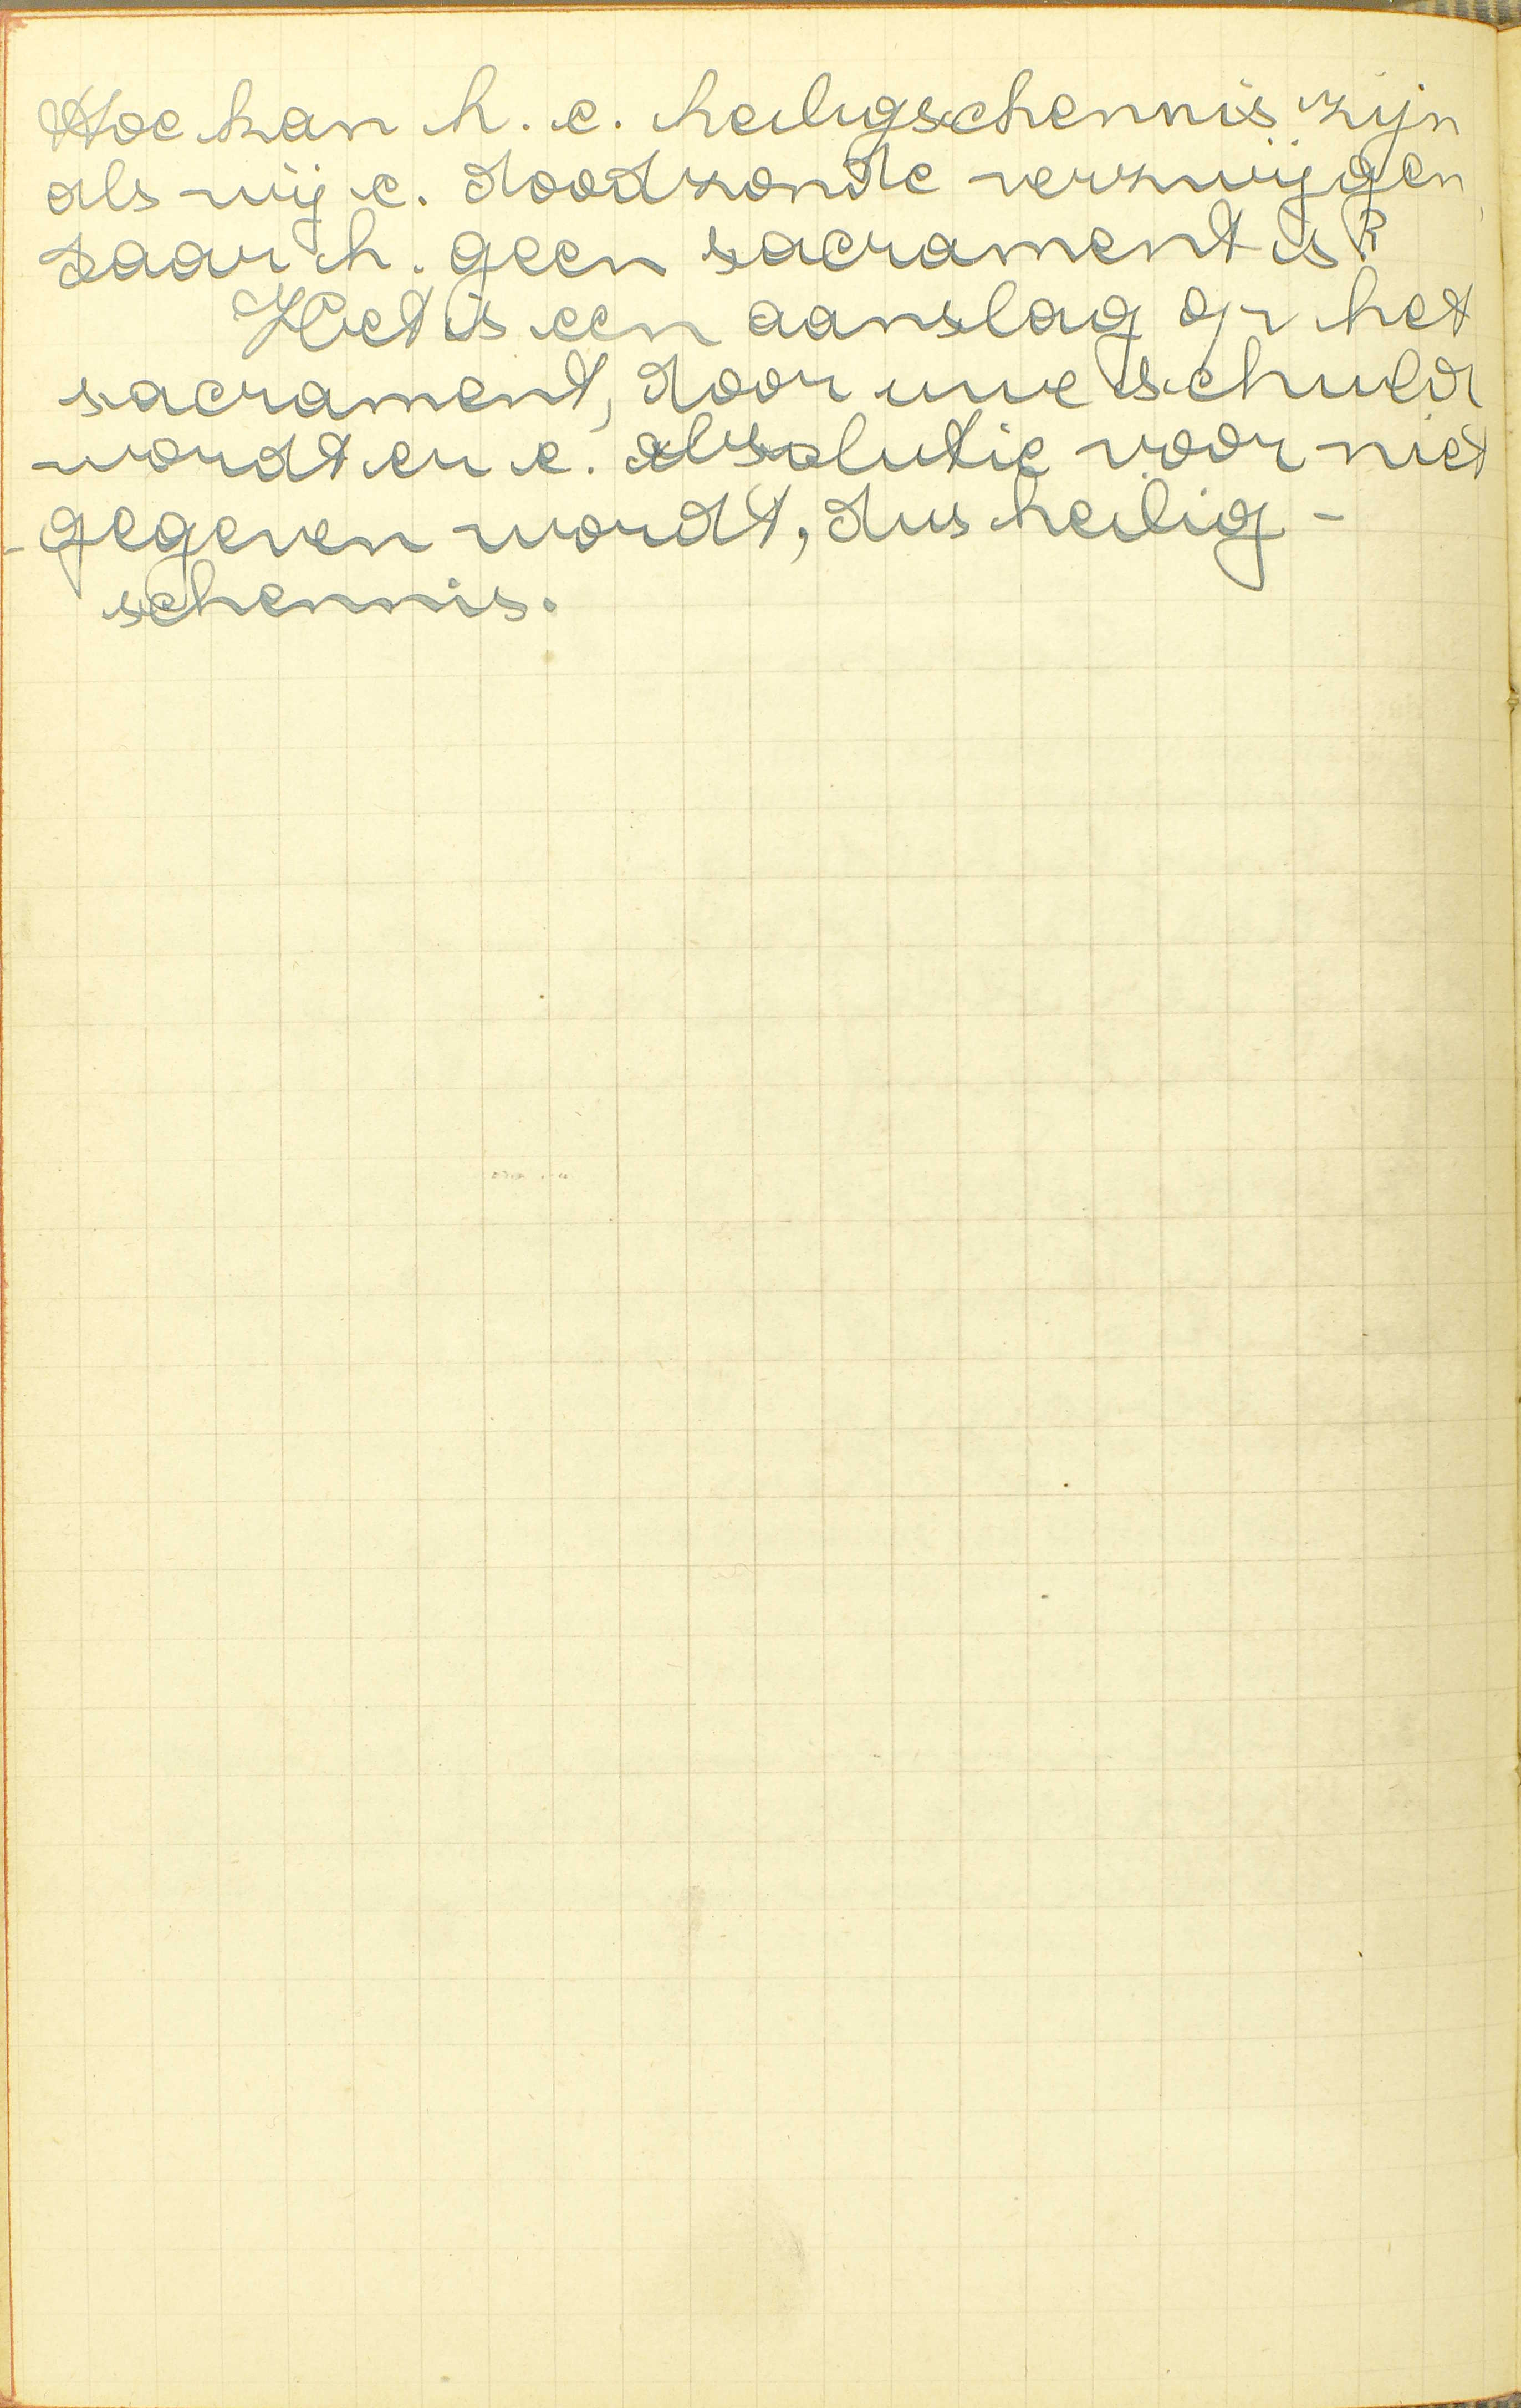 Hoe kan h. e. heiligschennis zijn
als wij e. doodzonde verzwijgen,
daar h. geen sacrament is?
Het is een aanslag op het
sacrament, door uwe schuld
wordt er e. absolutie voor niet
gegeven wordt, dus heilig-
schennis.